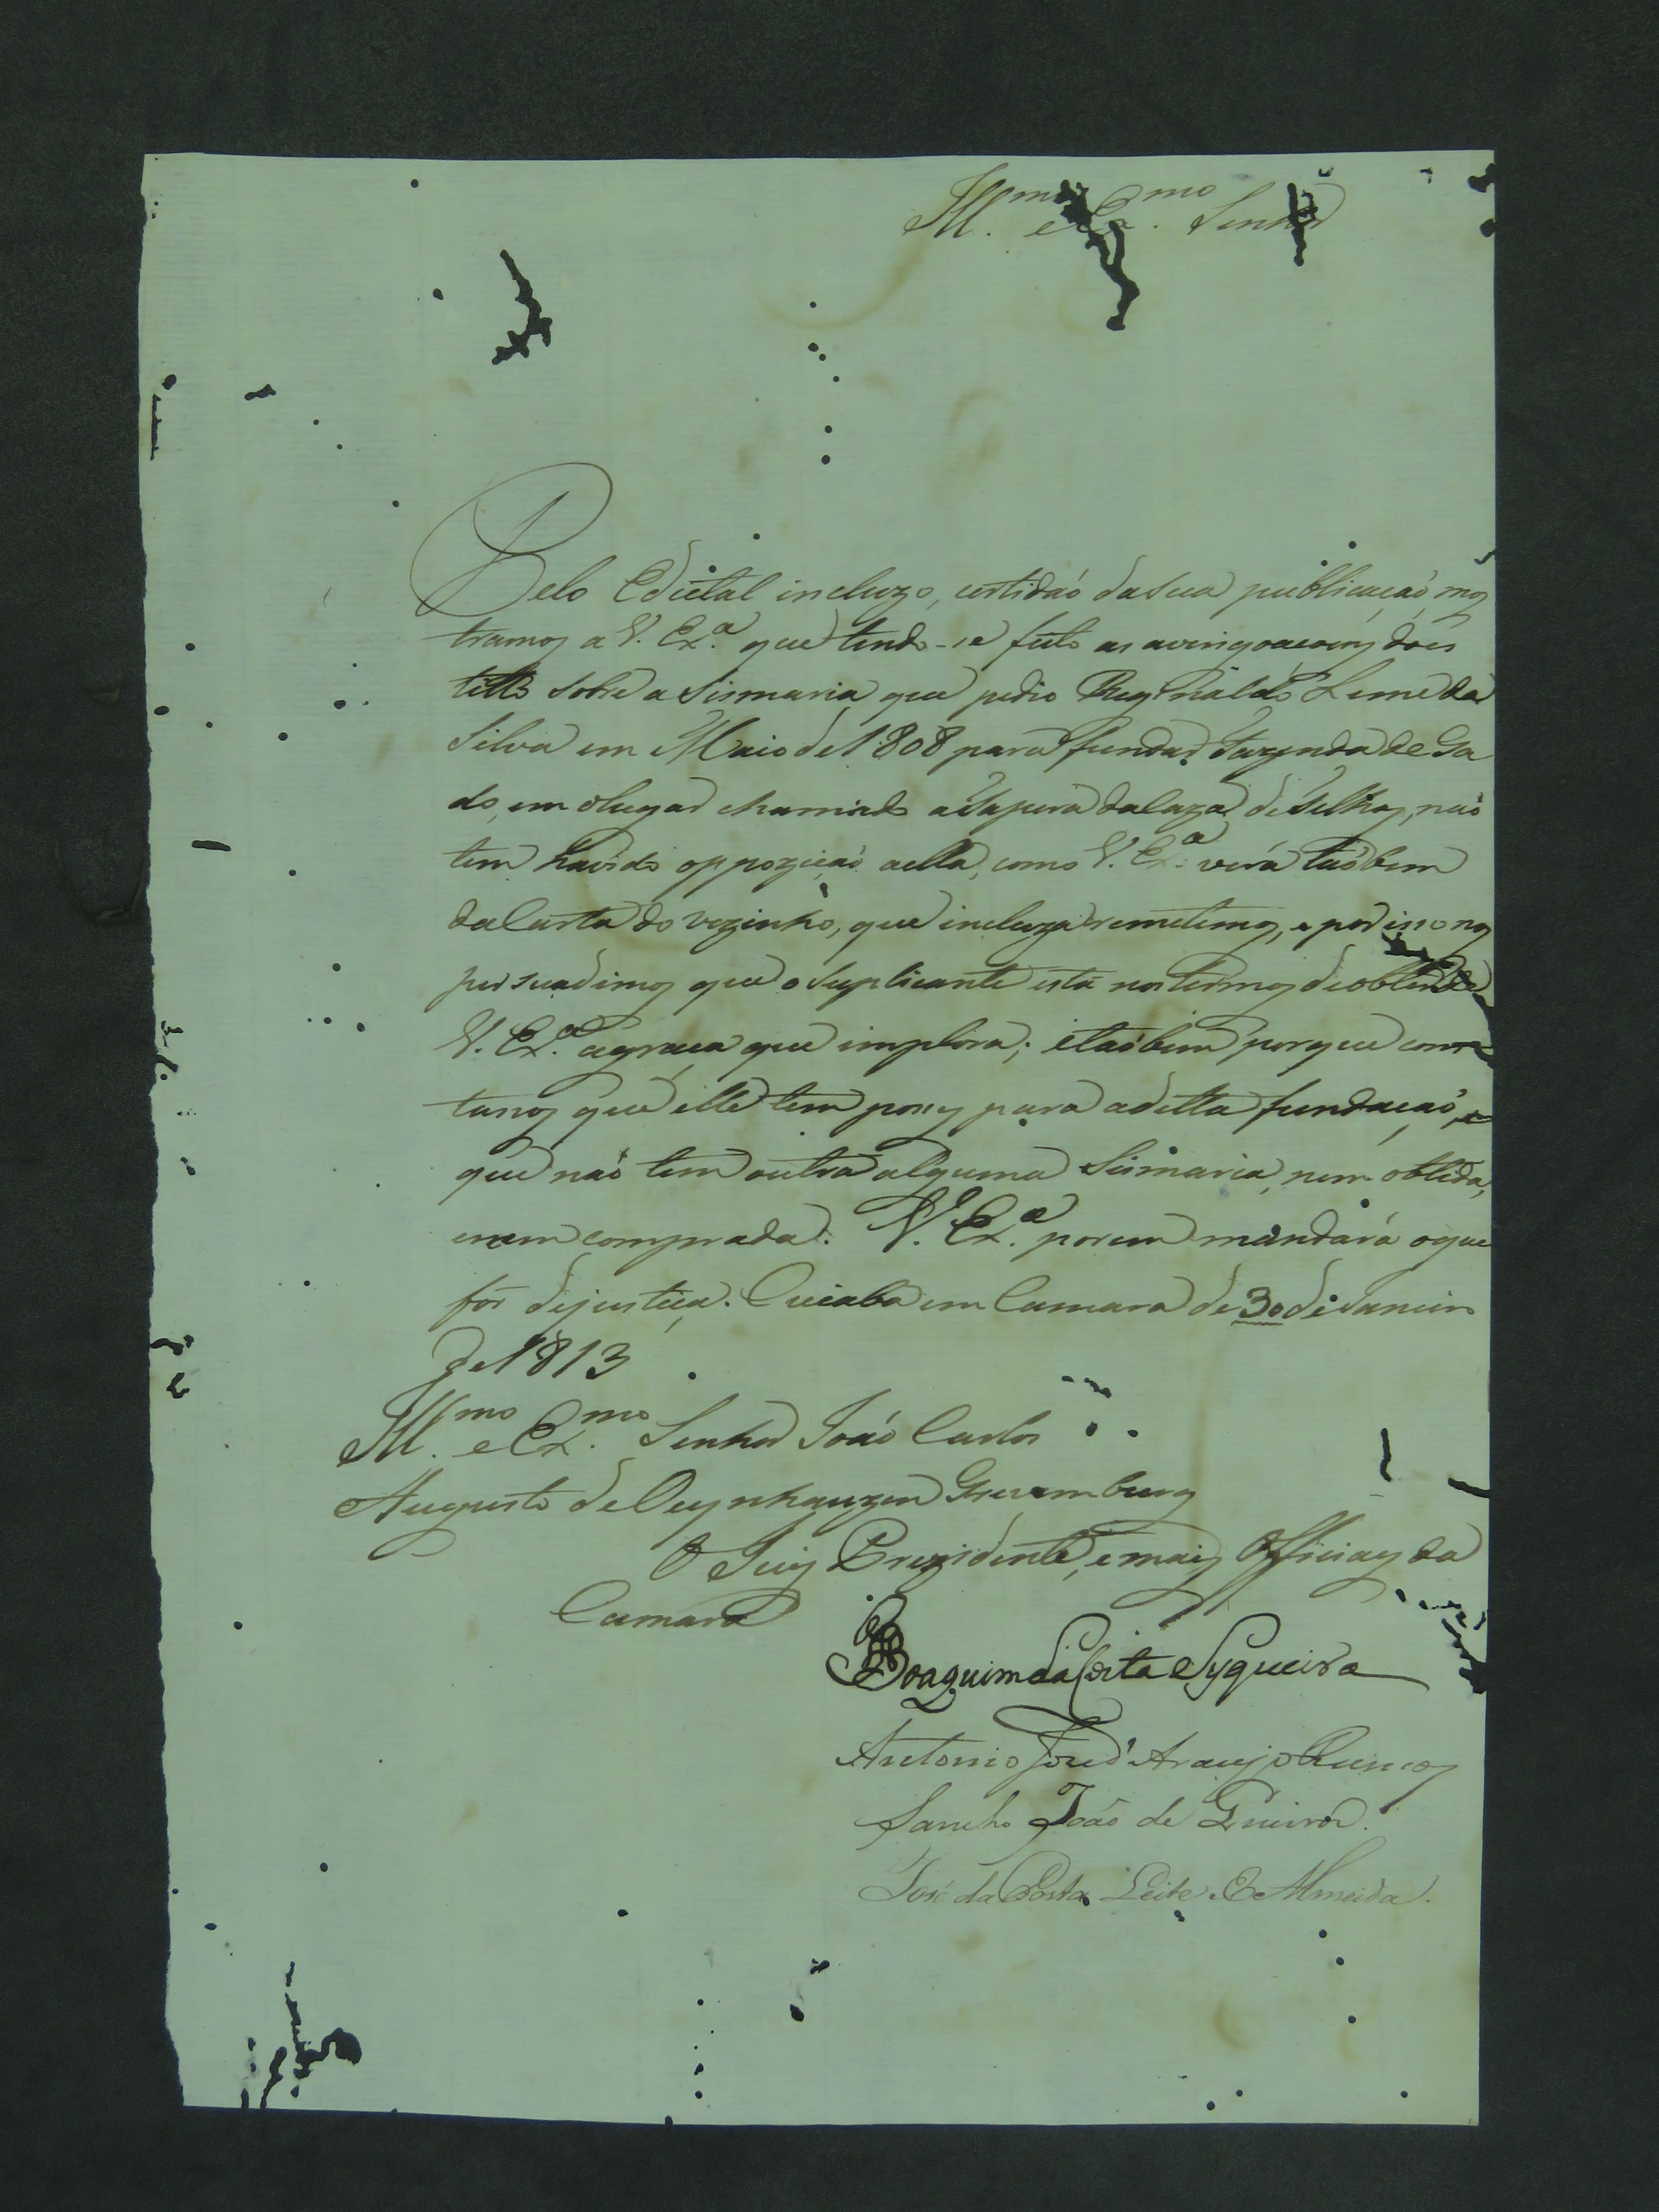 Ill.mo e Ex.mo Senhor
Pelo Edictal incluzo, certidaõ da sua publicaçaõ mos
tramos a V. Ex.a que tendo-se feito as averigoacoins do es
tillo sobre a Sismaria que pedio Reginaldo Leme da
Silva em Maio de 1808 para fundar Fazenda de Ga
do, em o lugar chamado a Tapera da Caza de Telhas, naõ
tem havido oppoziçaõ a ella, como V. Ex.a verá taõbem
da Carta do vezinho, que incluza remetemos, e por isso nos
persuadimos que o Suplicante está nos termos de obter de
V. Ex.a a graça que implora; e taõbem porque cons
ta nos que elle tem poces para a ditta fundaçaõ, e
que naõ tem outra alguma Sismaria, nem obtida,
e nem comprada. V. Ex.a porem mandará o que
for de justiça. Cuiaba em Camara de 30 de Janeiro
de 1813
Ill.mo e Ex.mo Senhor Joaõ Carlos
Augusto de Oeynhauzen Grevemburg
O Juis Prezidente, e mais Officiaes da
Camara
Joaquim da Costa Syqueira
Antonio Joze d'Araujo Ramos
Sancho João de Queiros.
José da Costa Leite E Almeida.